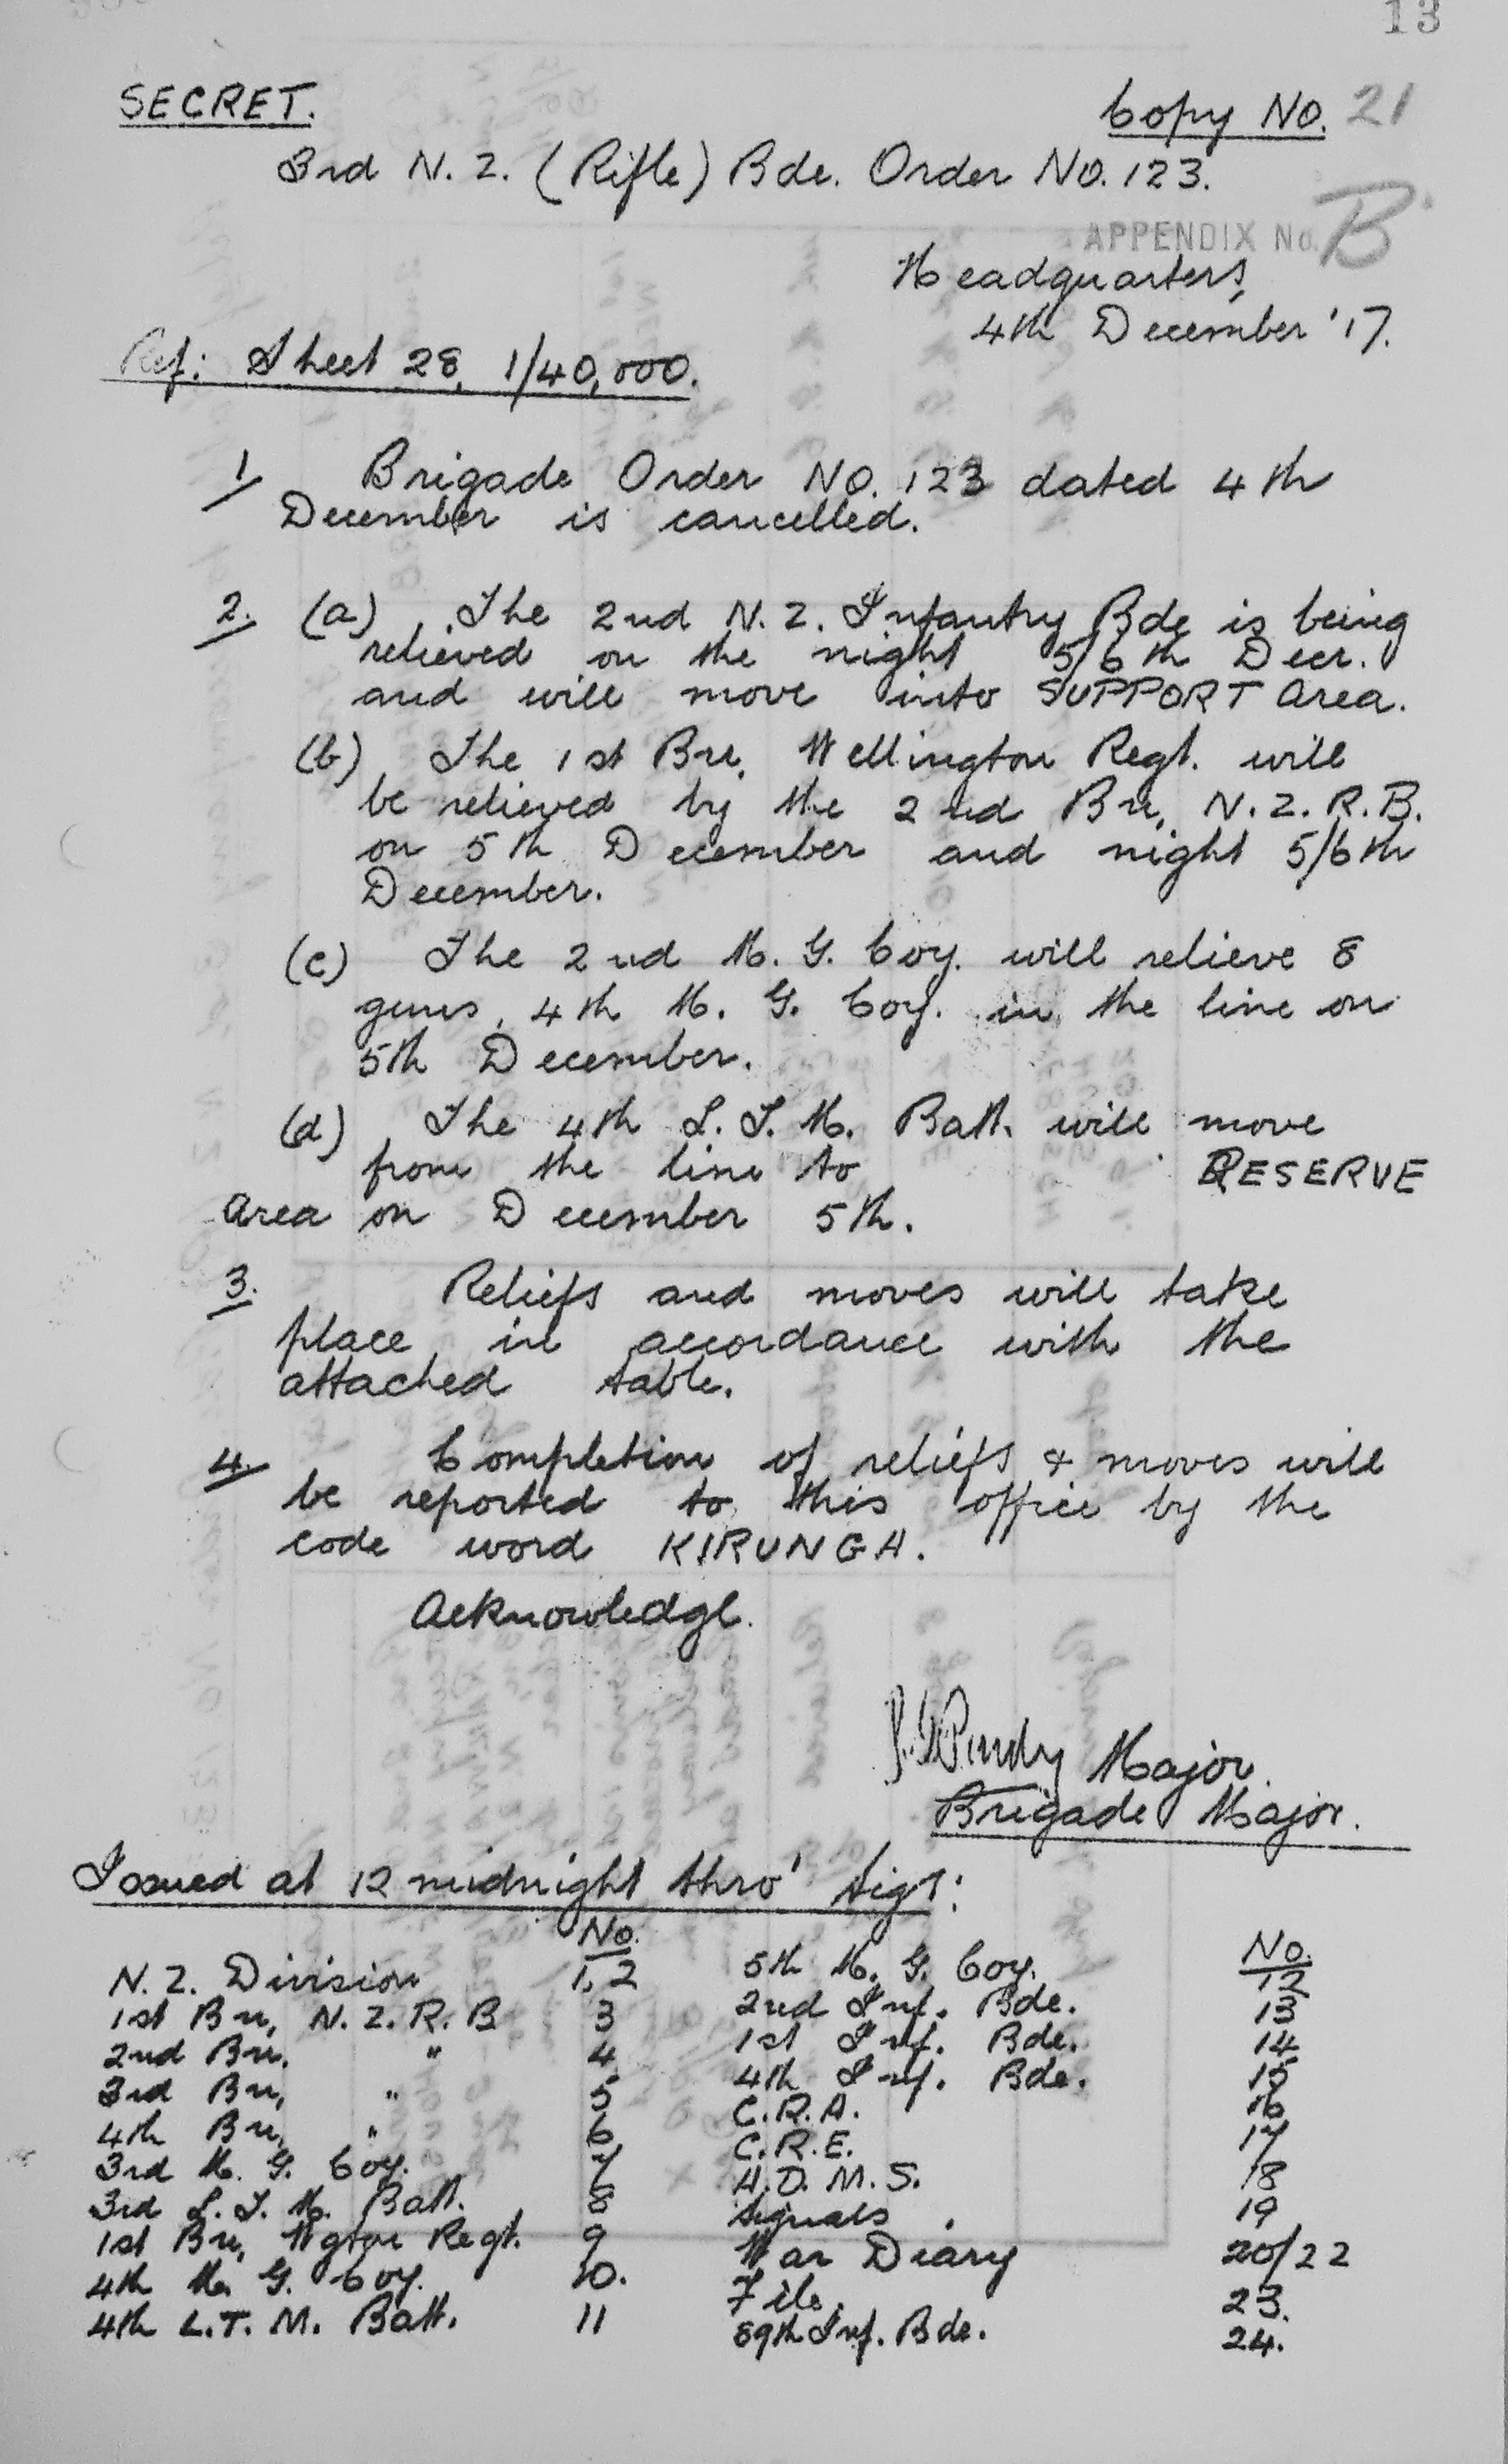 13
SECRET. Copy No. 21
3rd N. Z. (Rifle) Bde. Order No. 123.
APPENDIX No. B
Headquarters,
4th December '17.
Ref: Sheet 28, 1/40,000.
1/ Brigade Order No. 123 dated 4th
December is cancelled.
2. (a) The 2nd N. Z. Infantry Bde is being
relieved on the night 5/6th Decr.
and will move into SUPPORT Area.
(b) The 1st Bn, Wellington Regt. will
be relieved by the 2nd Bn, N. Z. R. B.
on 5th December and night 5/6th
December.
(c) The 2nd M. G. Coy. will relieve 8
guns, 4th M. G. Coy. in the line on
5th December.
(d) The 4th L. T. M. Batt. will move
from the line to RESERVE
Area on December 5th.
3. Reliefs and moves will take
place in accordance with the
attached table.
4. Completion of reliefs & moves will
be reported to this office by the
code word KIRUNGA.
Acknowledge.
Purdy Major.
Brigade Major.
Issued at 12 midnight thro' Sigs:
No. No.
N. Z. Division 1, 2 5th M. G. Coy. 12
1st Bn, N. Z. R. B. 3 2nd Inf. Bde. 13
2nd Bn. " 4 1st Inf. Bde. 14
3rd Bn, " 5 4th Inf. Bde. 15
4th Bn, " 6 C.R.A. 16
3rd M. G. Coy. 7 C.R.E. 17
3rd L. T. M. Batt. 8 A.D.M.S. 18
1st Bn, Wgton Regt. 9 Signals. 19
4th M. G. Coy. 10. War Diary 20/22
4th L.T.M. Batt. 11 File. 23.
89th Inf. Bde. 24.